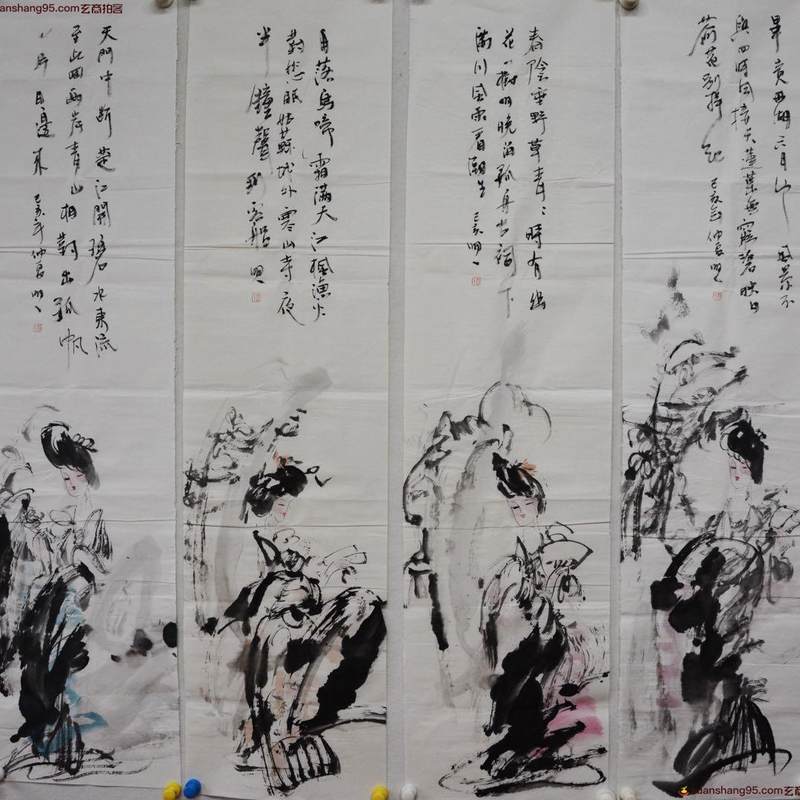 anshang95.com玄商拍客
畢竟西湖六月中風景不
與四時同接天蓮葉無窮碧映日
荷花別樣紅 己亥年仲春明
春陰垂野草青〻時有幽
花一樹明晚泊孤舟古祠下
滿川風雨看潮生 己亥明〻
月落烏啼霜滿天江楓漁火
對愁眠姑蘇城外寒山寺夜
半鐘聲到客船 明〻
天門中斷楚江開碧水東流
至此回兩岸青山相對出孤帆
一片日邊來 己亥年仲春明〻
uanshang95.com玄商拍客